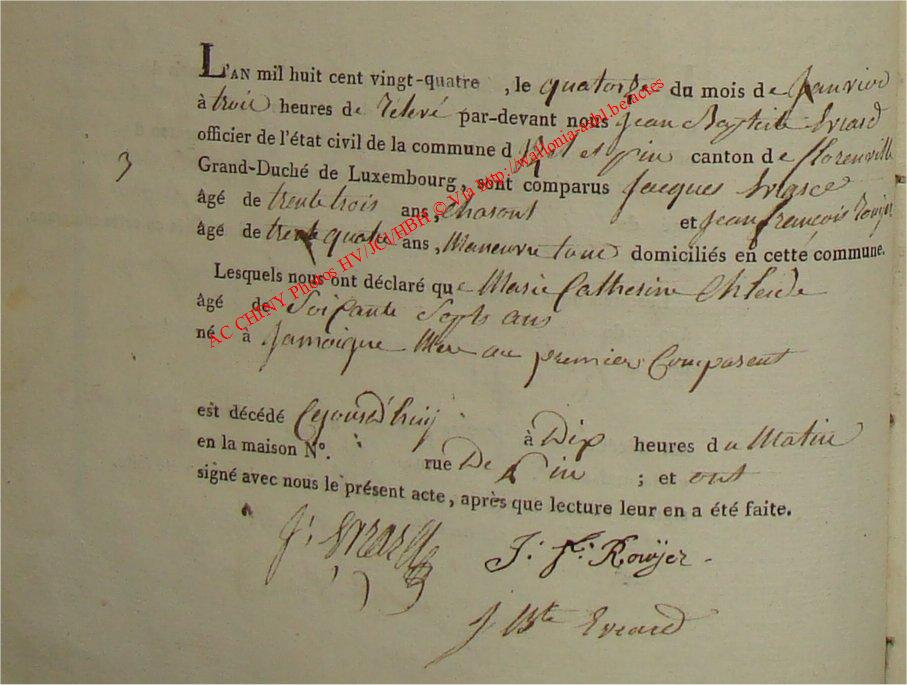 L'AN mil huit cent vingt-quatre , le quatorze du mois de Janvier
à trois heures de relevé par-devant nous Jean Baptiste Evrard
officier de l'état civil de la commune d et pin canton de florenville
3 Grand-Duché de Luxembourg, sont comparus Jacques
âgé de trente trois ans, et Jean françois Roujer
âgé de trente quatre ans, Maneuvre tous domiciliés en cette commune.
Lesquels nous ont déclaré que Marie Catherine
âgé de Soicante Septs ans
né à Jamoigne Mere au premier Comparent
est décédé Cejourd'huÿ à Dix heures du Matin
en la maison N°. : rue De Pin ; et ont
signé avec nous le présent acte, après que lecture leur en a été faite.
J: fs: Rouÿer
J Bte Evrard
AC CHINY Photos HV/JCI/HBH © Via http://wallonia-asbl.be/actes